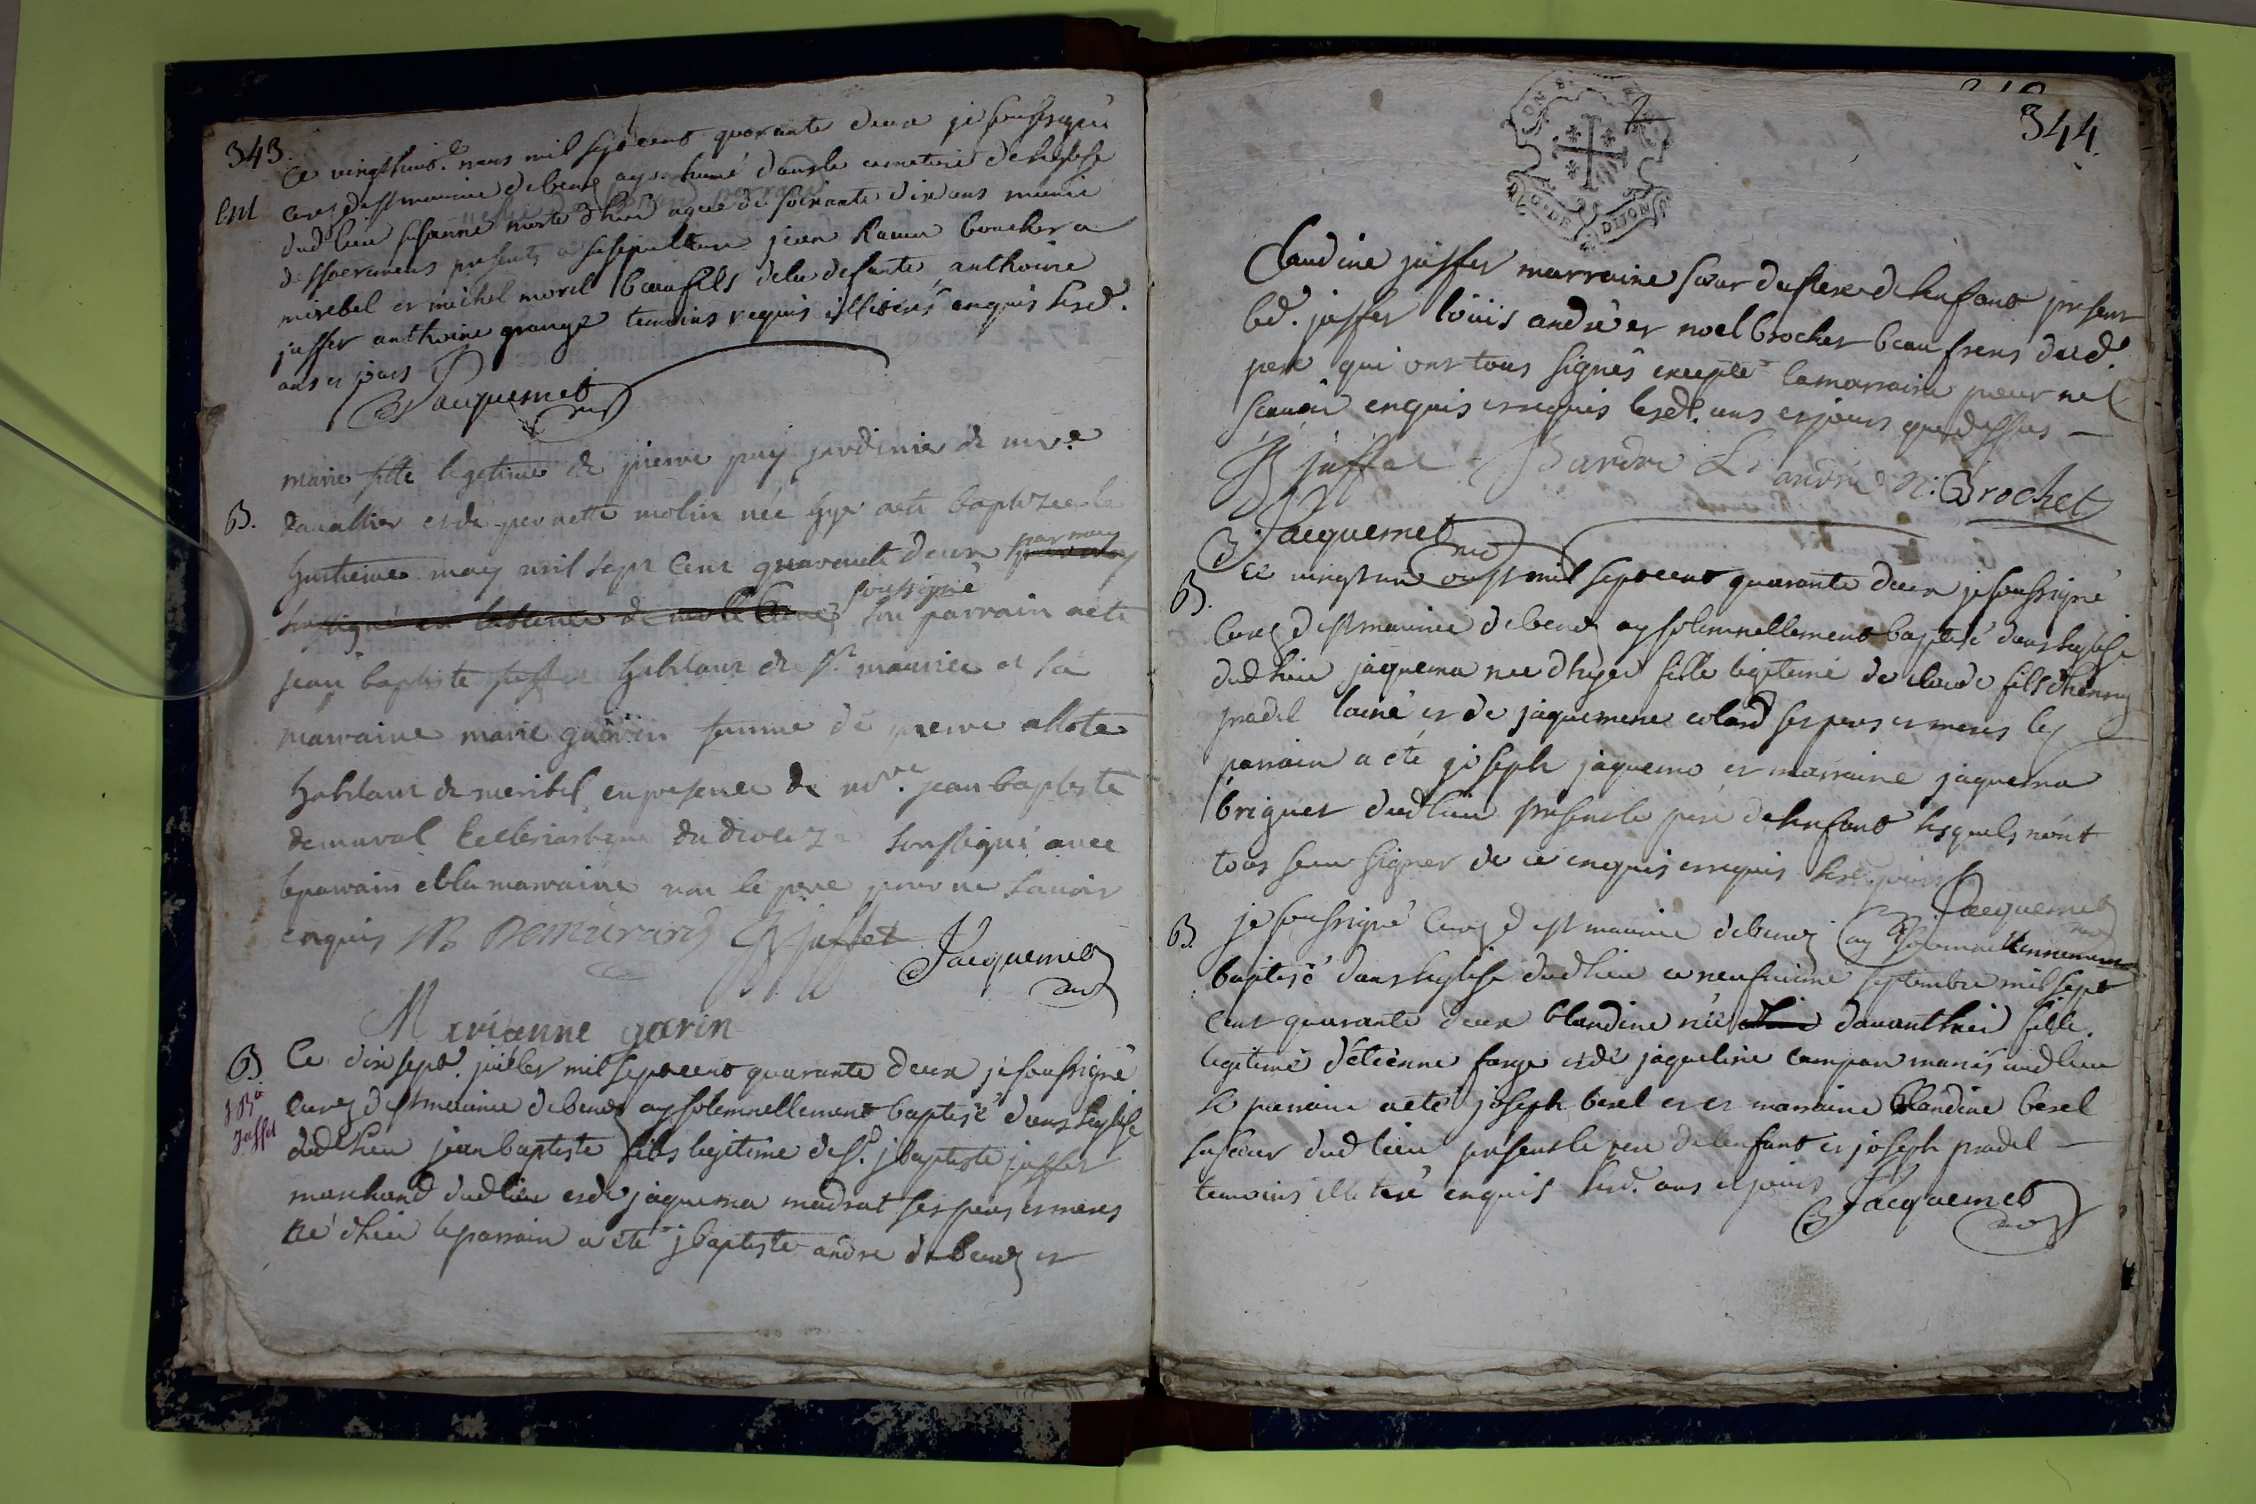 343.
Ce vingthuit.e mars mil sept cent quarante deux je soussigné
Ent
curez de st maurice de beinoz ay inhumé dans le cemetiere de leglise
dud. lieu susanne morte d'hier agee de soixante dix ans munie
des sacremens presents a sa sepulture jean boucher a
mirebel et michel morel beaufils de la defunte anthoine
juffet anthoine grange temoins requis illiterés enquis lesd.
ans et jours
Jacquemet
marie fille legitime de pierre puy jardinier de mr.
B.
et de pernette molin née hyer a eté baptizee le
huitieme may mil sept cent quarante deux par moy
soussigné
son parrain a eté
jean baptiste juffet habitant de st maurice et sa
marraine marie femme de pierre
habitant de meribel en presence de mre. jean baptiste
Ecclesiastique du dioceze soussigné avec
le parrain et la marraine non le pere pour ne savoir
enquis JB Demurard JB juffet Jacquemet
Marianne garin
B.
Ce dix sept. juillet mil sept cent quarante deux je soussigné
J Ba
Juffet
curez de st maurice de beinoz ay solemnellement baptisé dans leglise
dud. lieu jean baptiste fils legitime de sr. j baptiste juffet
marchand dud lieu et de jaquema ses peres et meres
né d'hier le parrain a eté j baptiste andre de beinoz et
344.
DIJON
Claudine juffet marraine sœur du pere de lenfant present
led. juffet loüis andré et noel brochet beaufrere dud.
pere qui ont tous signés excepté la marraine pour ne
scavoir enquis et requis lesd. ans et jours que dessus
JB juffet andre L andré N: Brochet
Jacquemet
B.
Ce vingt un oust mil sept cent quarante deux je soussigné
curez de st maurice de beinoz ay solemnellement baptisé dans leglise
dud lieu jaquema née d'hyer fille legitime de claude fils d'henry
pradel lainé et de jaquemene colard ses peres et meres le
parrain a eté joseph jaquemo et marraine jaquema
briguet dud lieu present le pere de lenfant lesquels n'ont
tous seu signer de ce enquis et requis
Jacquemet
B.
je soussigné curez de st maurice de beinoz ay solemnellement
baptisé dans leglise dud lieu ce neufvieme septembre mil sept
cent quarante deux blandine née davanthier fille
legitime d'etienne farge et de jaqueline campan mariés aud lieu
le parrain a eté joseph berel et et marraine Blandine berel
sa sœur dud lieu present le pere de lenfant et joseph pradel
temoins illiteré enquis lesd. ans et jours
Jacquemet